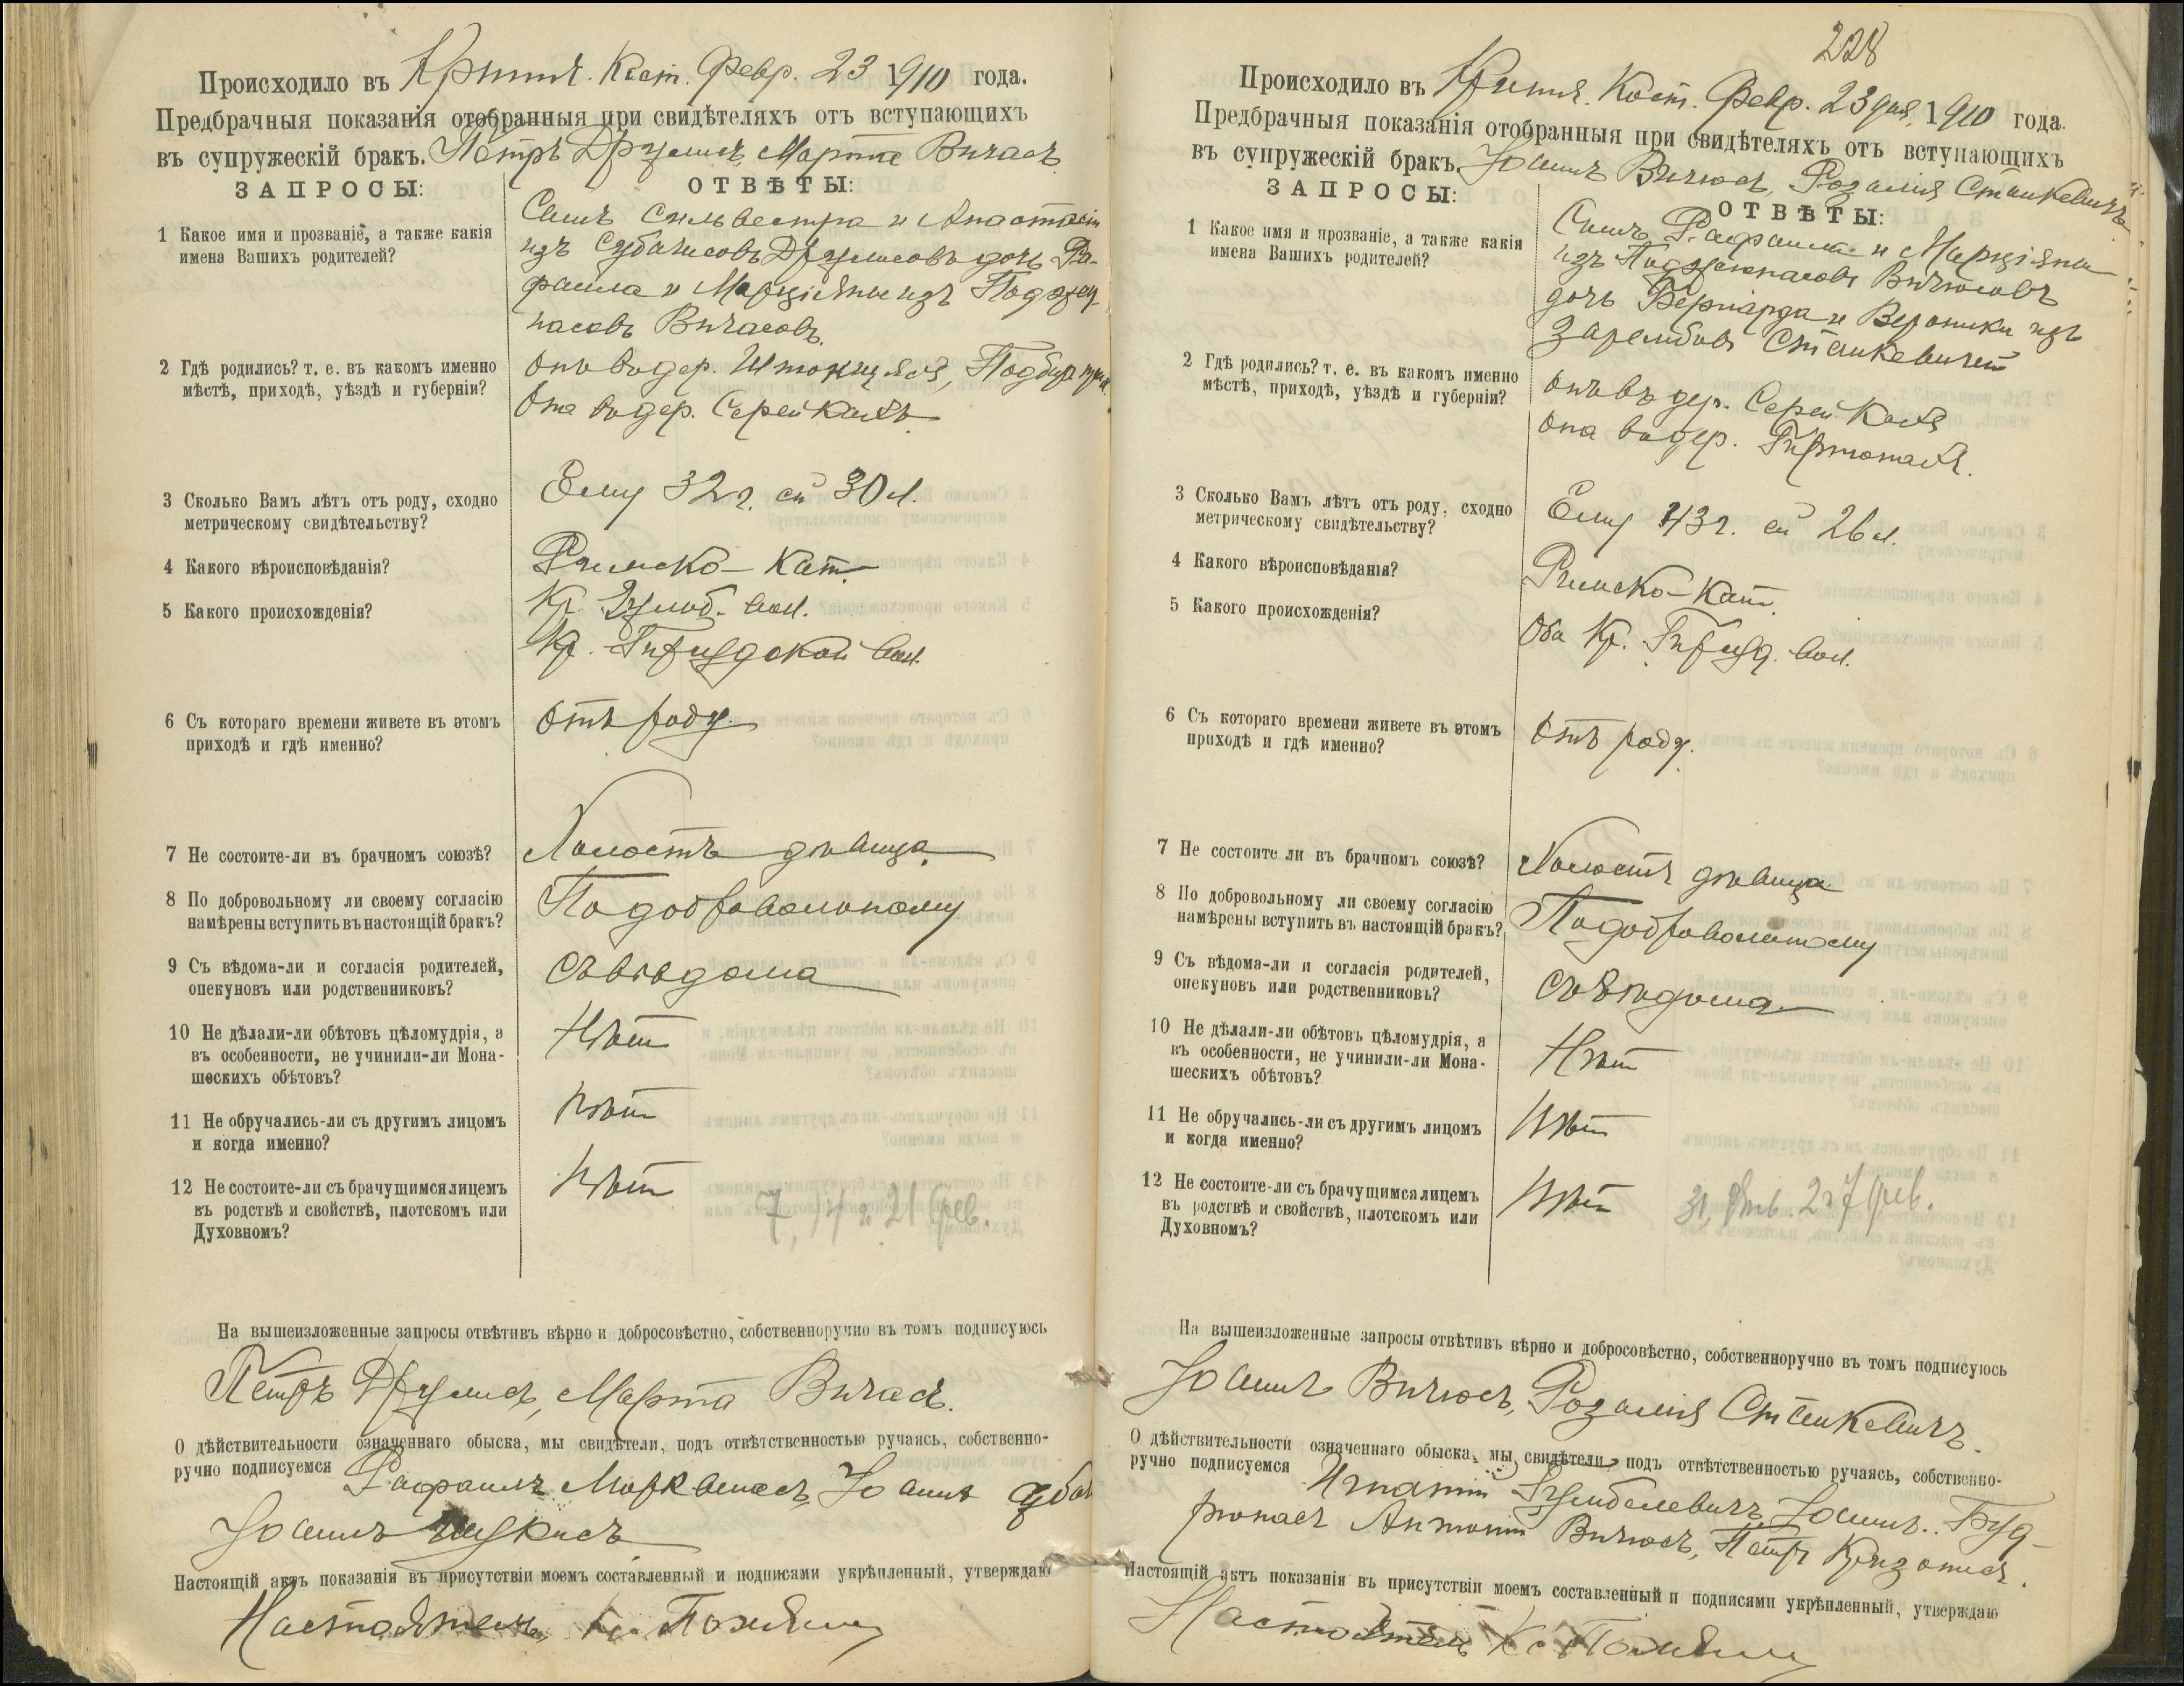 Происходило въ Крипн. Кост. Февр. 23 1910 года.
Предбрачныя показанія отобранныя при свидѣтеляхъ отъ вступающихъ
въ супружескій бракъ. Петръ Друлисъ, Марта Вичасъ
ЗАПРОСЫ:
ОТВѢТЫ:
1 Какое имя и прозваніе, а также какія
имена Вашихъ родителей?
Сынъ Сильвестра и Анастасіи
изъ Друлисовъ дочь Ра-
фаила и Марціяны изъ
насовъ Вичасовъ.
2 Гдѣ родились? т. е. въ какомъ именно
мѣстѣ, приходѣ, уѣздѣ и губерніи?
Онъ въ дер.
Она въ дер. Серейкахъ
3 Сколько Вамъ лѣтъ отъ роду, сходно
метрическому свидѣтельству?
Ему 32 г. ей 30 л.
4 Какого вѣроисповѣданія?
Римско-Кат.
5 Какого происхожденія?
Кр. вол.
Кр. вол.
6 Съ котораго времени живете въ этомъ
приходѣ и гдѣ именно?
Отъ роду.
7 Не состоите-ли въ брачномъ союзѣ?
Холостъ дѣвица
8 По добровольному ли своему согласію
намѣрены вступить въ настоящій бракъ?
По добровольному
9 Съ вѣдома-ли и согласія родителей,
опекуновъ или родственниковъ?
Съ вѣдома
10 Не дѣлали-ли обѣтовъ цѣломудрія, а
въ особенности, не учинили-ли Мона-
шескихъ обѣтовъ?
Нѣт
11 Не обручались-ли съ другимъ лицомъ
и когда именно?
Нѣт
12 Не состоите-ли съ брачущимся лицемъ
въ родствѣ и свойствѣ, плотскомъ или
Духовномъ?
Нѣт
7, 14 и 21 фев.
На вышеизложенные запросы отвѣтивъ вѣрно и добросовѣстно, собственноручно въ томъ подписуюсь
Петръ Друлисъ, Марта Вичасъ.
О дѣйствительности означеннаго обыска, мы свидѣтели, подъ отвѣтственностью ручаясь, собственно-
ручно подписуемся Рафаилъ Іоаннъ
Іоаннъ
Настоящій актъ показанія въ присутствіи моемъ составленный и подписями укрѣпленный, утверждаю
Настоятель, Кс.
228
Происходило въ Крипн. Кост. Февр. 23 дня, 1910 года.
Предбрачныя показанія отобранныя при свидѣтеляхъ отъ вступающихъ
въ супружескій бракъ. Іоаннъ Вичюсъ, Розалія Станкевичъ
ЗАПРОСЫ:
ОТВѢТЫ:
1 Какое имя и прозваніе, а также какія
имена Вашихъ родителей?
Сынъ Рафаила и Марціяны
изъ Вичюсовъ
дочь Бернарда и Вероники изъ
Зарембовъ Станкевичей
2 Гдѣ родились? т. е. въ какомъ именно
мѣстѣ, приходѣ, уѣздѣ и губерніи?
Онъ въ дер. Серейкахъ
Она въ дер.
3 Сколько Вамъ лѣтъ отъ роду, сходно
метрическому свидѣтельству?
Ему 43 г. ей 26 л.
4 Какого вѣроисповѣданія?
Римско-Кат.
5 Какого происхожденія?
Оба Кр. вол.
6 Съ котораго времени живете въ этомъ
приходѣ и гдѣ именно?
Отъ роду.
7 Не состоите ли въ брачномъ союзѣ?
Холостъ дѣвица
8 По добровольному ли своему согласію
намѣрены вступить въ настоящій бракъ?
По добровольному
9 Съ вѣдома-ли и согласія родителей,
опекуновъ или родственниковъ?
Съ вѣдома
10 Не дѣлали-ли обѣтовъ цѣломудрія, а
въ особенности, не учинили-ли Мона-
шескихъ обѣтовъ?
Нѣт
11 Не обручались-ли съ другимъ лицомъ
и когда именно?
Нѣт
12 Не состоите-ли съ брачущимся лицемъ
въ родствѣ и свойствѣ, плотскомъ или
Духовномъ?
Нѣт
31 Янв. 2 и 7 фев.
На вышеизложенные запросы отвѣтивъ вѣрно и добросовѣстно, собственноручно въ томъ подписуюсь
Іоаннъ Вичюсъ, Розалія Станкевичъ.
О дѣйствительности означеннаго обыска, мы свидѣтели, подъ отвѣтственностью ручаясь, собственно-
ручно подписуемся Игнатій Іоаннъ
Антоній Вичюсъ, Петръ
Настоящій актъ показанія въ присутствіи моемъ составленный и подписями укрѣпленный, утверждаю
Настоятель Кс.